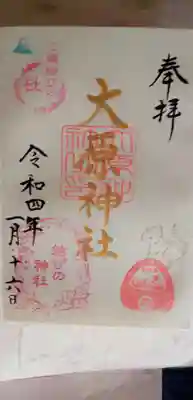 奉拝
大原神社
令和四年
一月十六日
結びの
神社